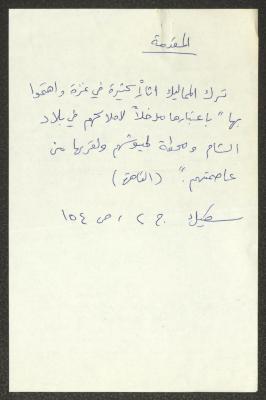 المقدمة
ترك المماليك آثاراً كثيرة في غزة واهتموا
بها "باعتبارها مدخلاً لاملاكهم في بلاد
الشام ومحطة لجيوشهم ولقربها من
عاصمتهم." (القاهرة)
سكيك ج ٢ ، ص ١٥٤